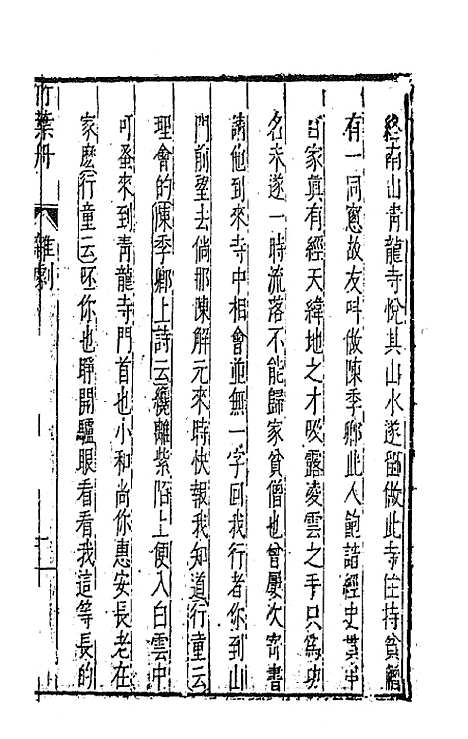 終南山青龍寺悅其山水遂留做此寺住持貧僧
有一同窓故友呌做陳季卿此人飽諳經史貫串
百家眞有經天緯地之才吸露凌雲之手只爲功
名未遂一時流落不能歸家貧僧也曾屢次寄書
請他到來寺中相會並無一字回我行者你到山
門前望去倘那陳解元來時快報我知道行童云
理會的陳季卿上詩云纔離紫陌上便入白雲中
可蚤來到青龍寺門首也小和尚你惠安長老在
家麽行童云呸你也睜開驢眼看看我這等長的
竹葉舟
雜劇
一